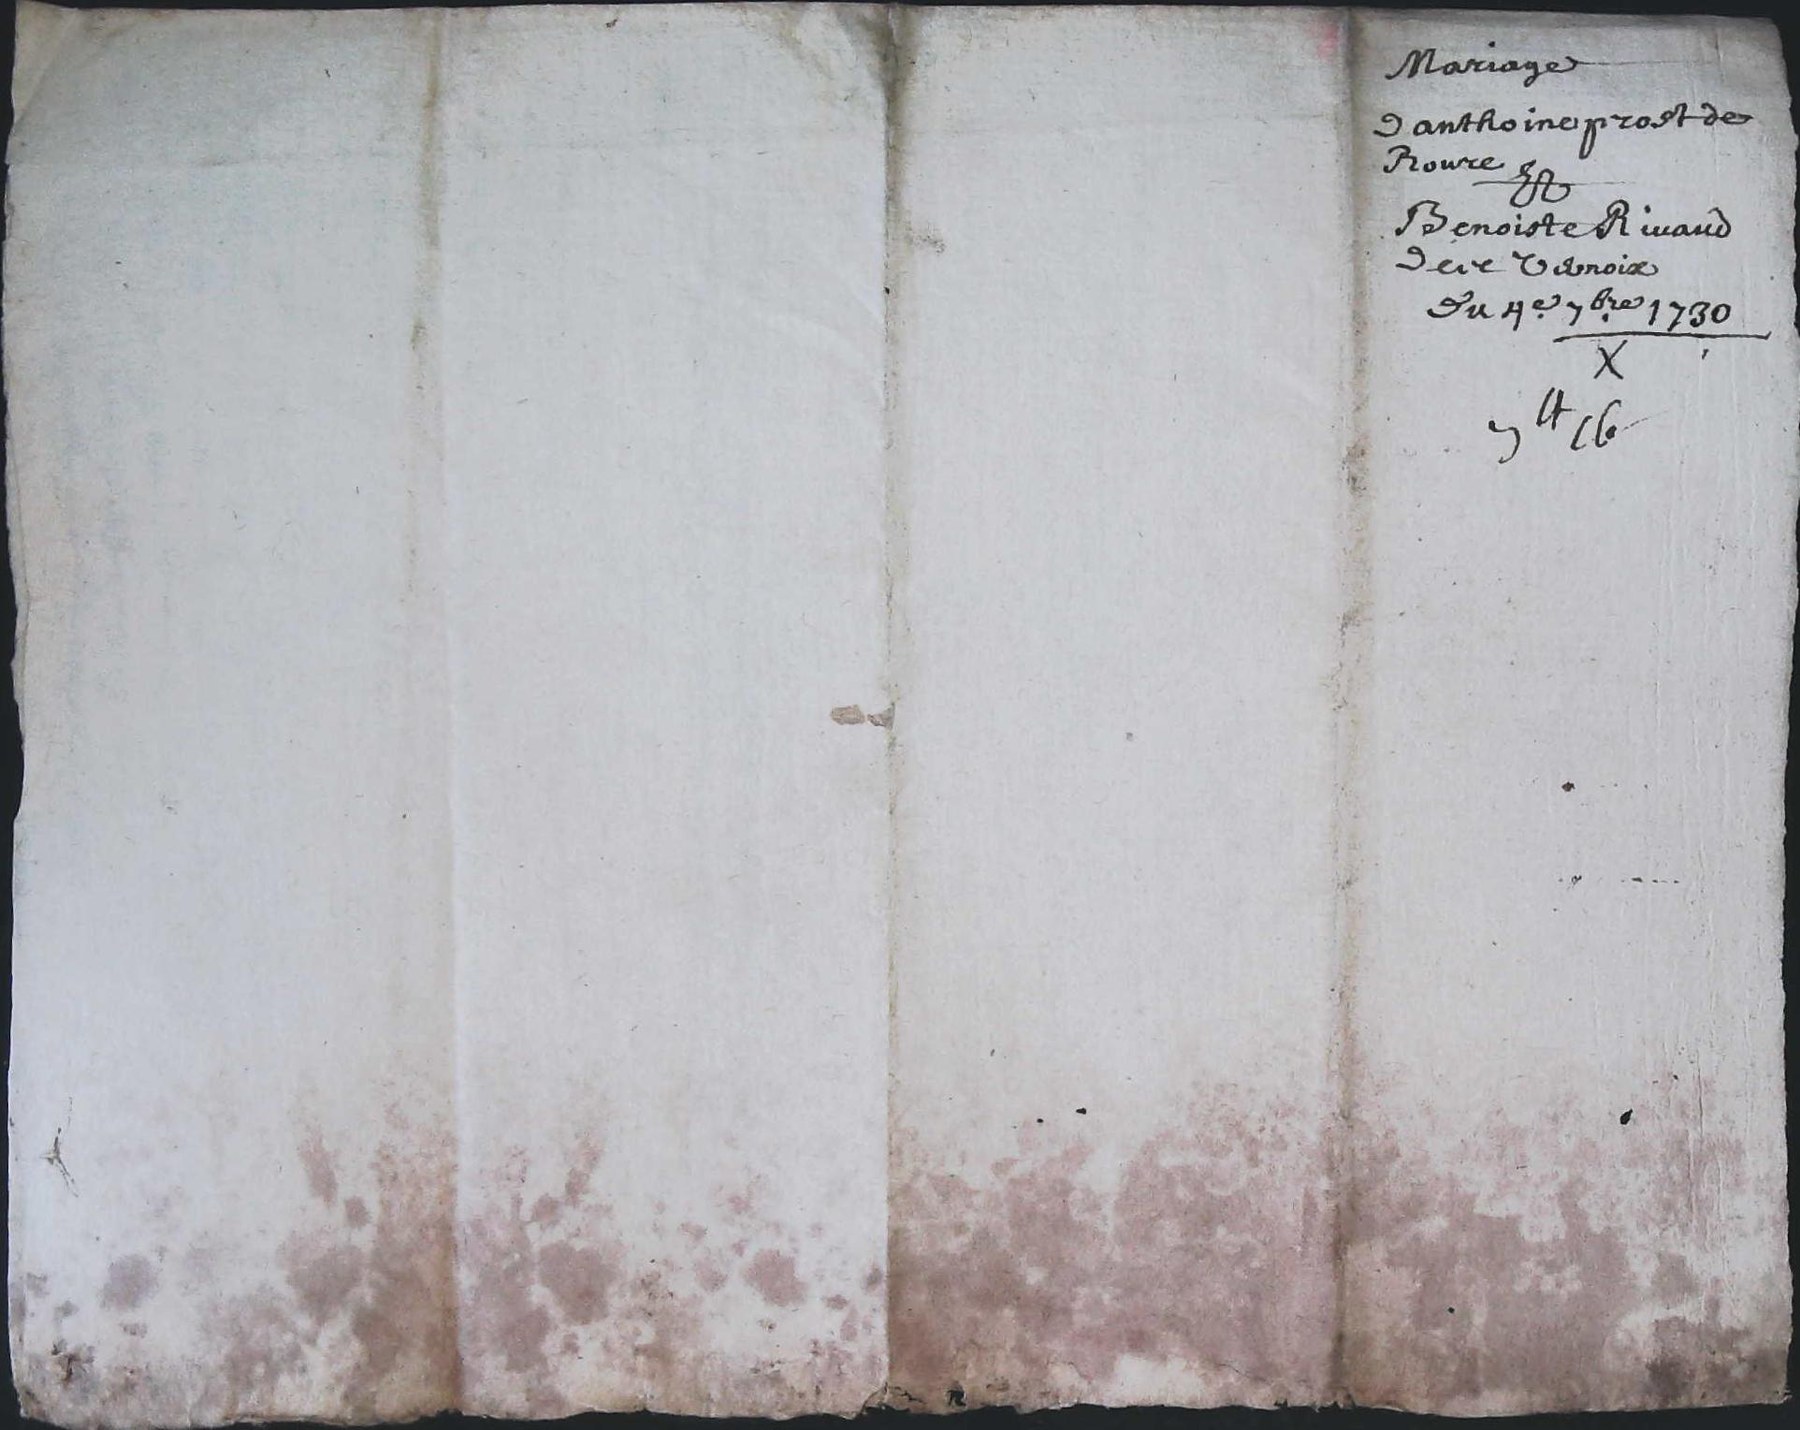 Mariage
Danthoine prost de
Roure &
Benoiste Rivaud
De Vernoix
Du 4e 7bre 1730
X